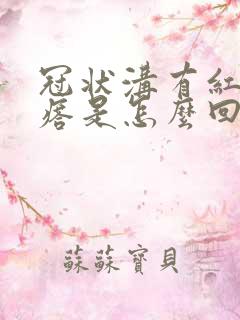 冠状溝有紅
痞是怎麼回
蘇蘇寶貝